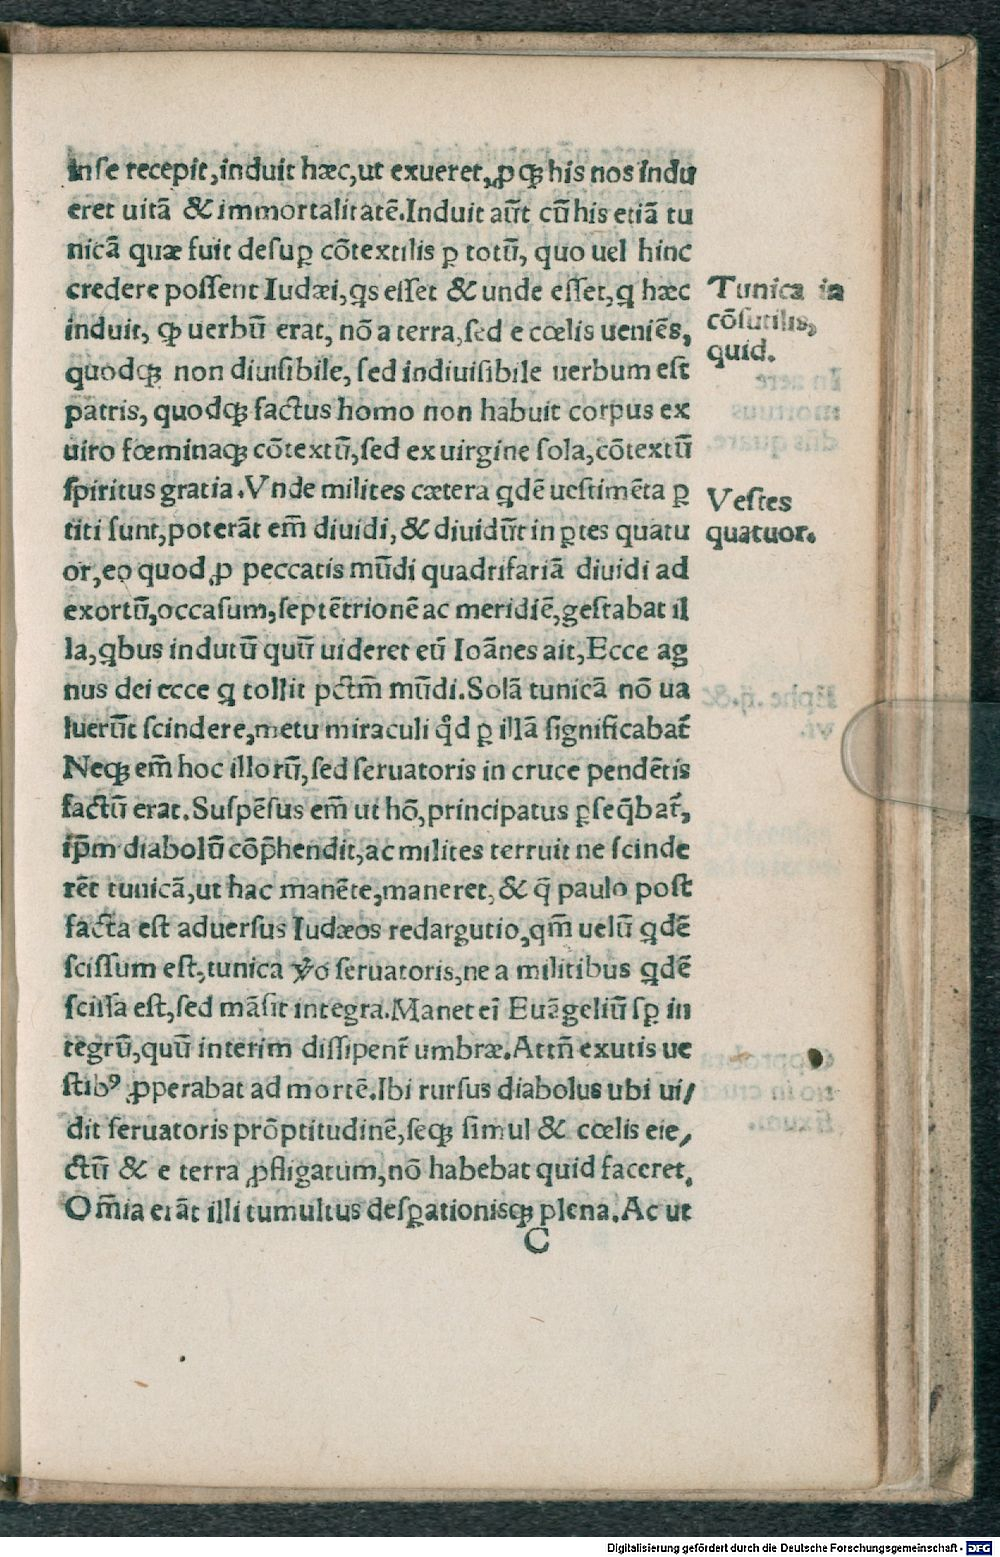 in se recepit, induit hæc, ut exueret, ꝓ q́ꝫ his nos indu
eret uitā & immortalitatē. Induit aūt cū his etiā tu
nicā quæ fuit desuꝑ cōtextilis ꝑ totū, quo uel hinc
credere possent Iudæi, qs esset & unde esset, q hæc
induit, ꝙ uerbū erat, nō a terra, sed e cœlis ueniēs,
quodq́ꝫ non diuisibile, sed indiuisibile uerbum est
patris, quodq́ꝫ factus homo non habuit corpus ex
uiro fœminaq́ꝫ cōtextū, sed ex uirgine sola, cōtextū
spiritus gratia. Vnde milites cætera qdē uestimēta ꝑ
titi sunt, poterāt em̄ diuidi, & diuidūt in ꝑtes quatu
or, eo quod ꝓ peccatis mūdi quadrifariā diuidi ad
exortū, occasum, septētrionē ac meridiē, gestabat il
la, qbus indutū quū uideret eū Ioānes ait, Ecce ag
nus dei ecce q tollit pctm̄ mūdi. Solā tunicā nō ua
luerūt scindere, metu miraculi qd ꝑ illā significabat̄
Neq́ꝫ em̄ hoc illorū, sed seruatoris in cruce pendētis
factū erat. Suspēsus em̄ ut hō, principatus ꝑseq̄bat̄,
ip̄m diabolū cōp̄hendit, ac milites terruit ne scinde
rēt tunicā, ut hac manēte, maneret, & q̄ paulo post
facta est aduersus Iudæos redargutio, qm̄ uelū qdē
scissum est, tunica ỽo seruatoris, ne a militibus qdē
scissa est, sed māsit integra. Manet eī Euāgeliū sꝑ in
tegrū, quū interim dissipent̄ umbræ. Attn̄ exutis ue
stibꝰ ꝓperabat ad mortē. Ibi rursus diabolus ubi ui/
dit seruatoris prōptitudinē, seq́ꝫ simul & cœlis eie/
ctū & e terra ꝓfligatum, nō habebat quid faceret.
Om̄ia erāt illi tumultus desꝑationisq́ꝫ plena. Ac ut
C
Tunica in
cōsutilis,
quid.
Vestes
quatuor.
Digitalisierung gefördert durch die Deutsche Forschungsgemeinschaft - DFG